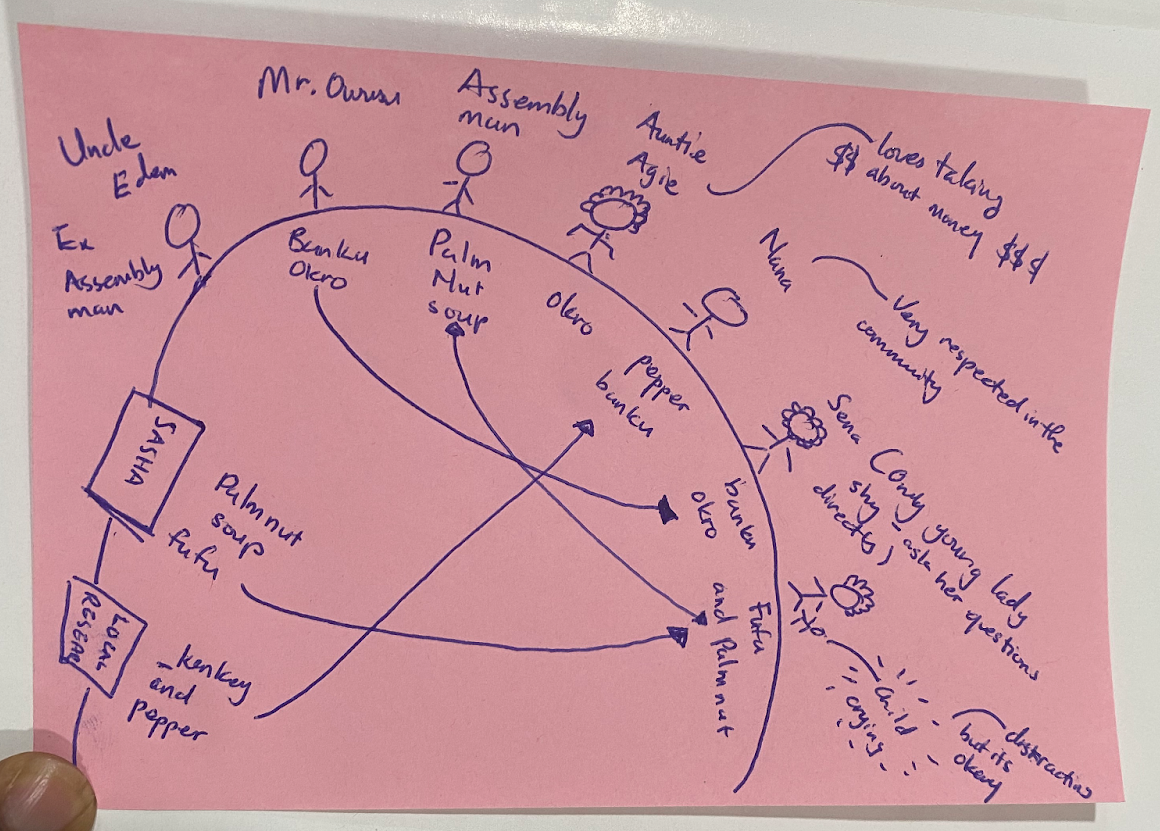 Mr. Owusu
Assembly
man
Auntie
Agie
loves talking
$$ about money $$$
Uncle
Edem
Ex
Assembly
man
Banku
Okro
Palm
Nut
soup
Okro
pepper
banku
Nana
Very respected in the
community
Sena
young lady
shy - ask her questions
directly
banku
okro
Fufu
and Palmnut
SASHA
Palmnut
soup
fufu
LOCAL
- kenkey
and
pepper
child
crying
distracting
but its
okay